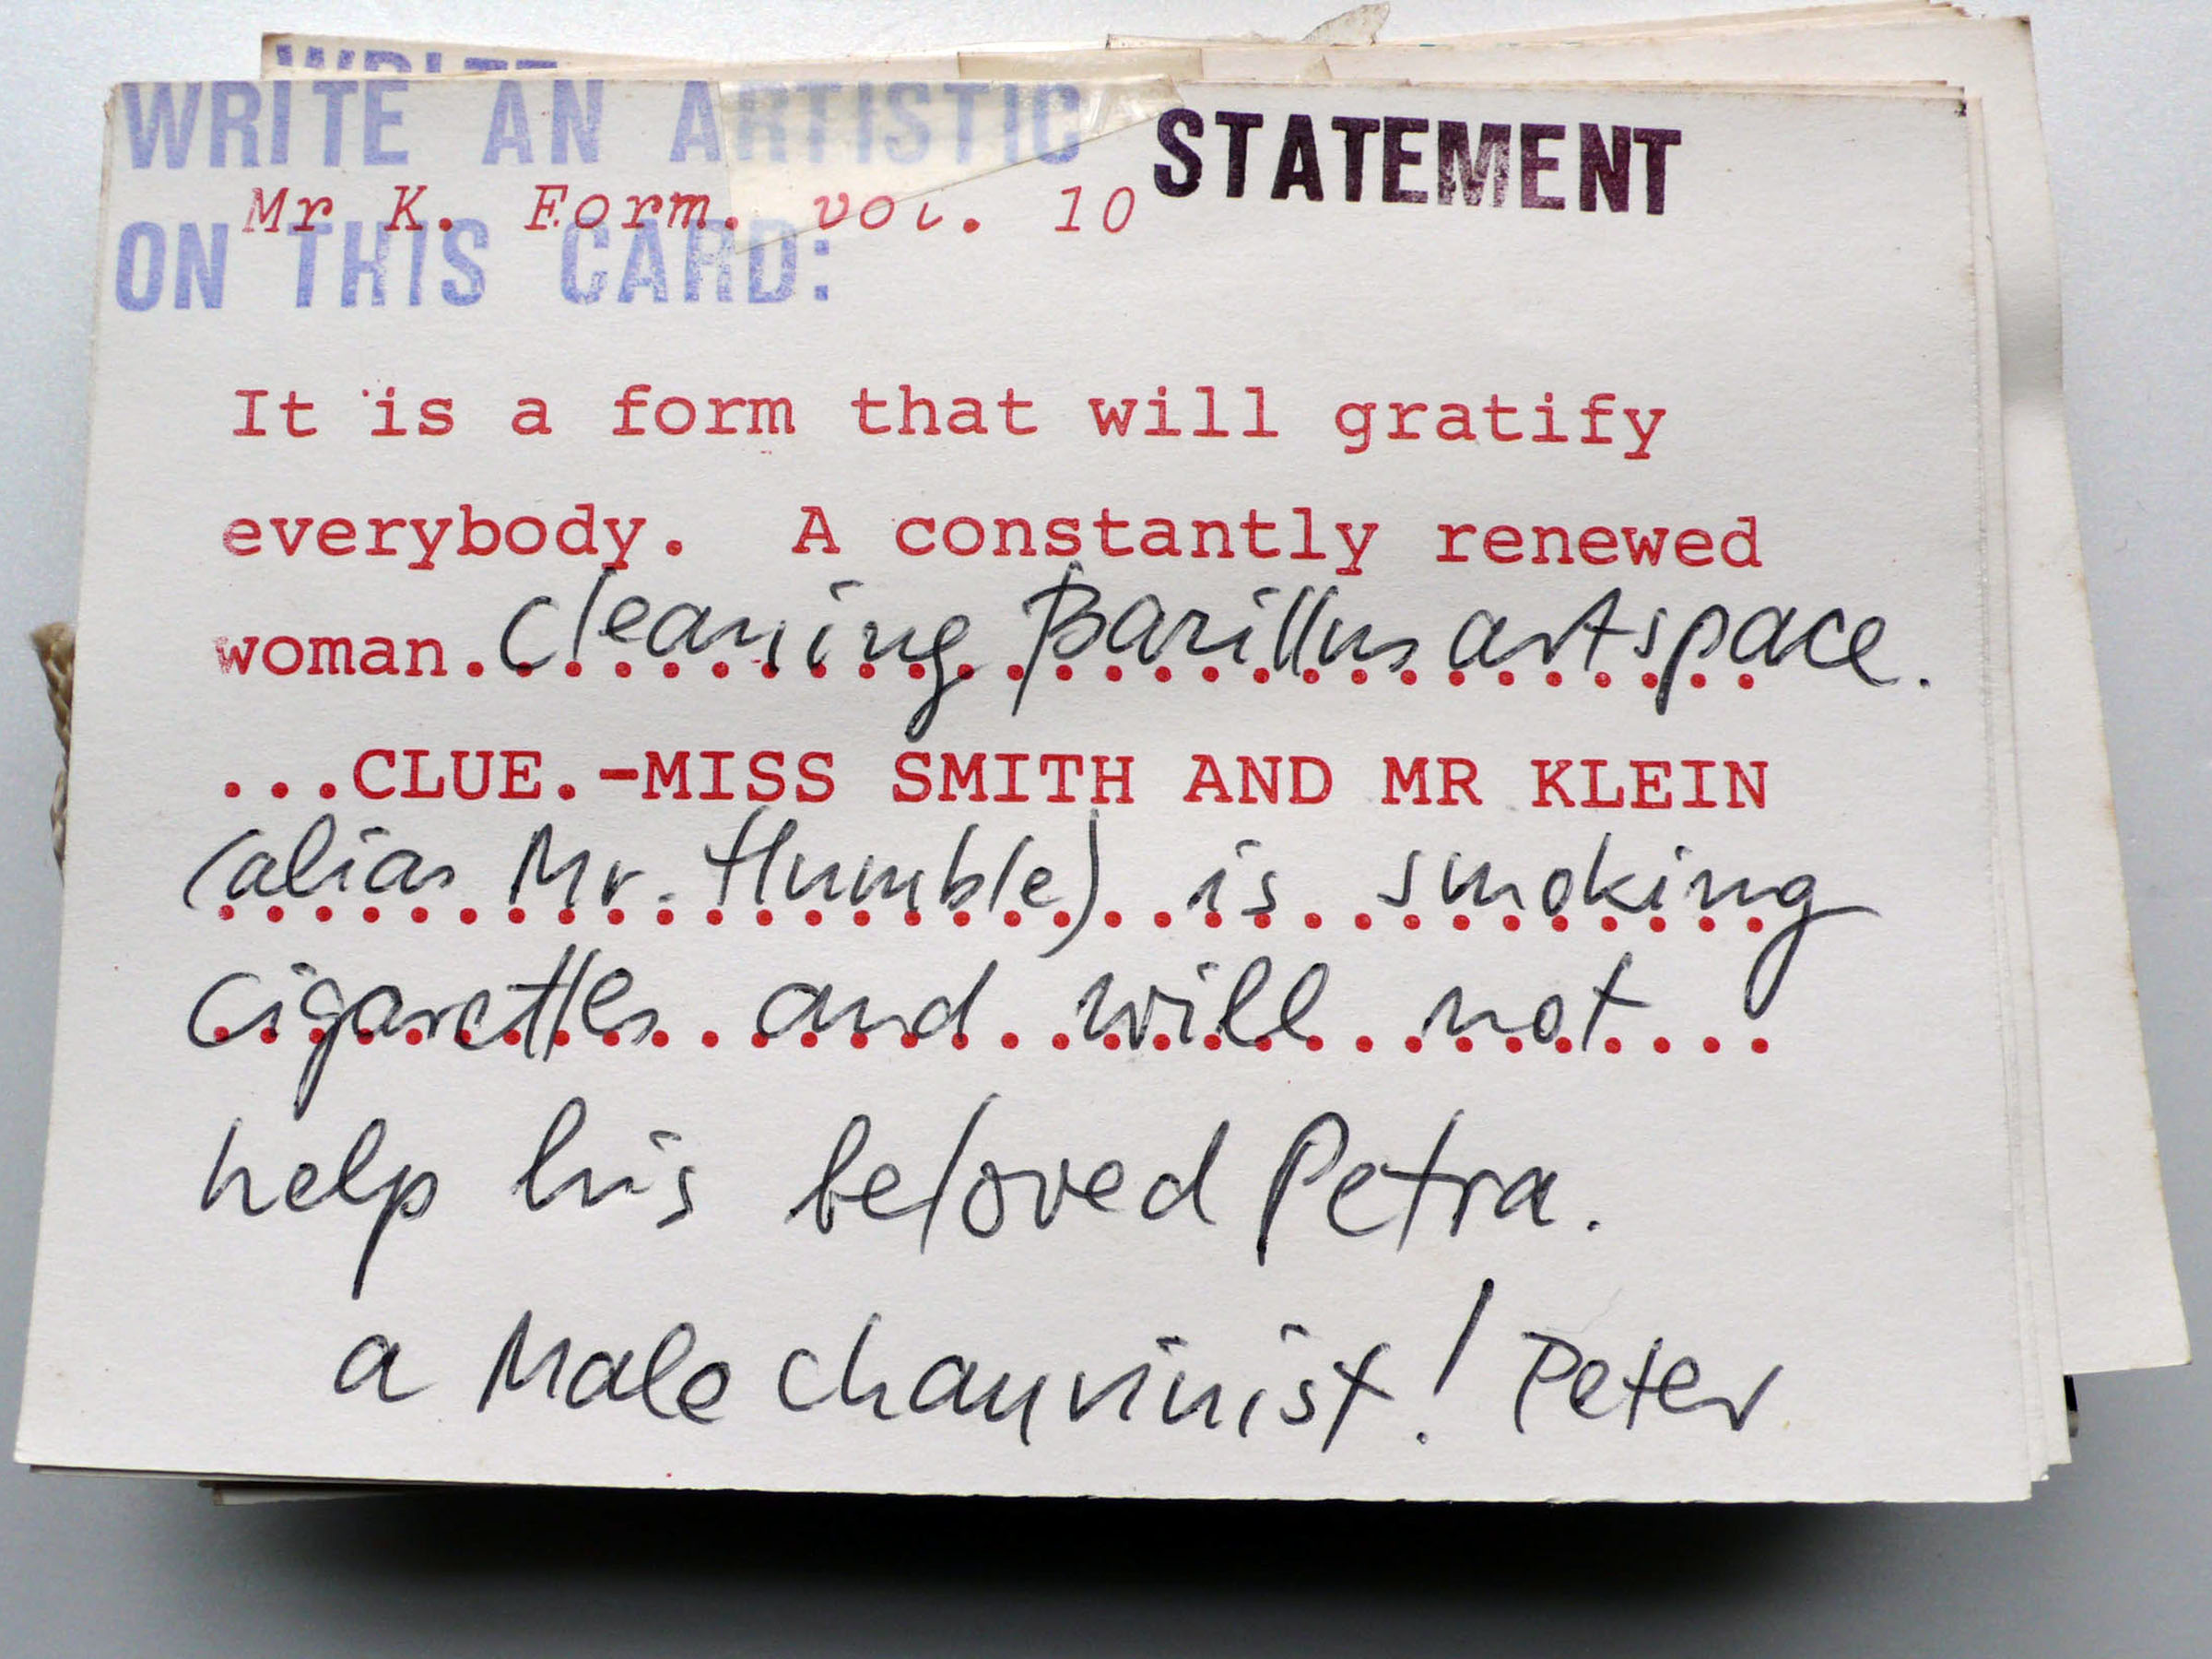 WRITE
WRITE AN ARTISTIC STATEMENT
Mr K. Form. vol. 10
ON THIS CARD:
It is a form that will gratify
everybody. A constantly renewed
woman. cleaning Barillus artspace.
...CLUE.-MISS SMITH AND MR KLEIN
(alias Mr. Humble) is smoking
cigarettes and will not
help his beloved Petra.
a Male chauvinist! Peter